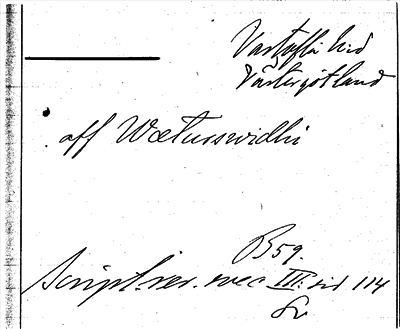 Vartofta hd
Västergötland
aff Wætusswidhi
B 59.
Script. rer. svec III: sid 114